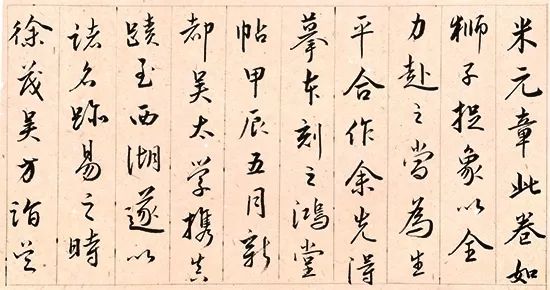 米元章此卷如
狮子捉象以全
力赴之当为生
平合作余先得
摹本刻之鸿堂
帖甲辰五月新
都吴太学携真
蹟至西湖遂以
诸名迹易之时
徐茂吴方诣吴